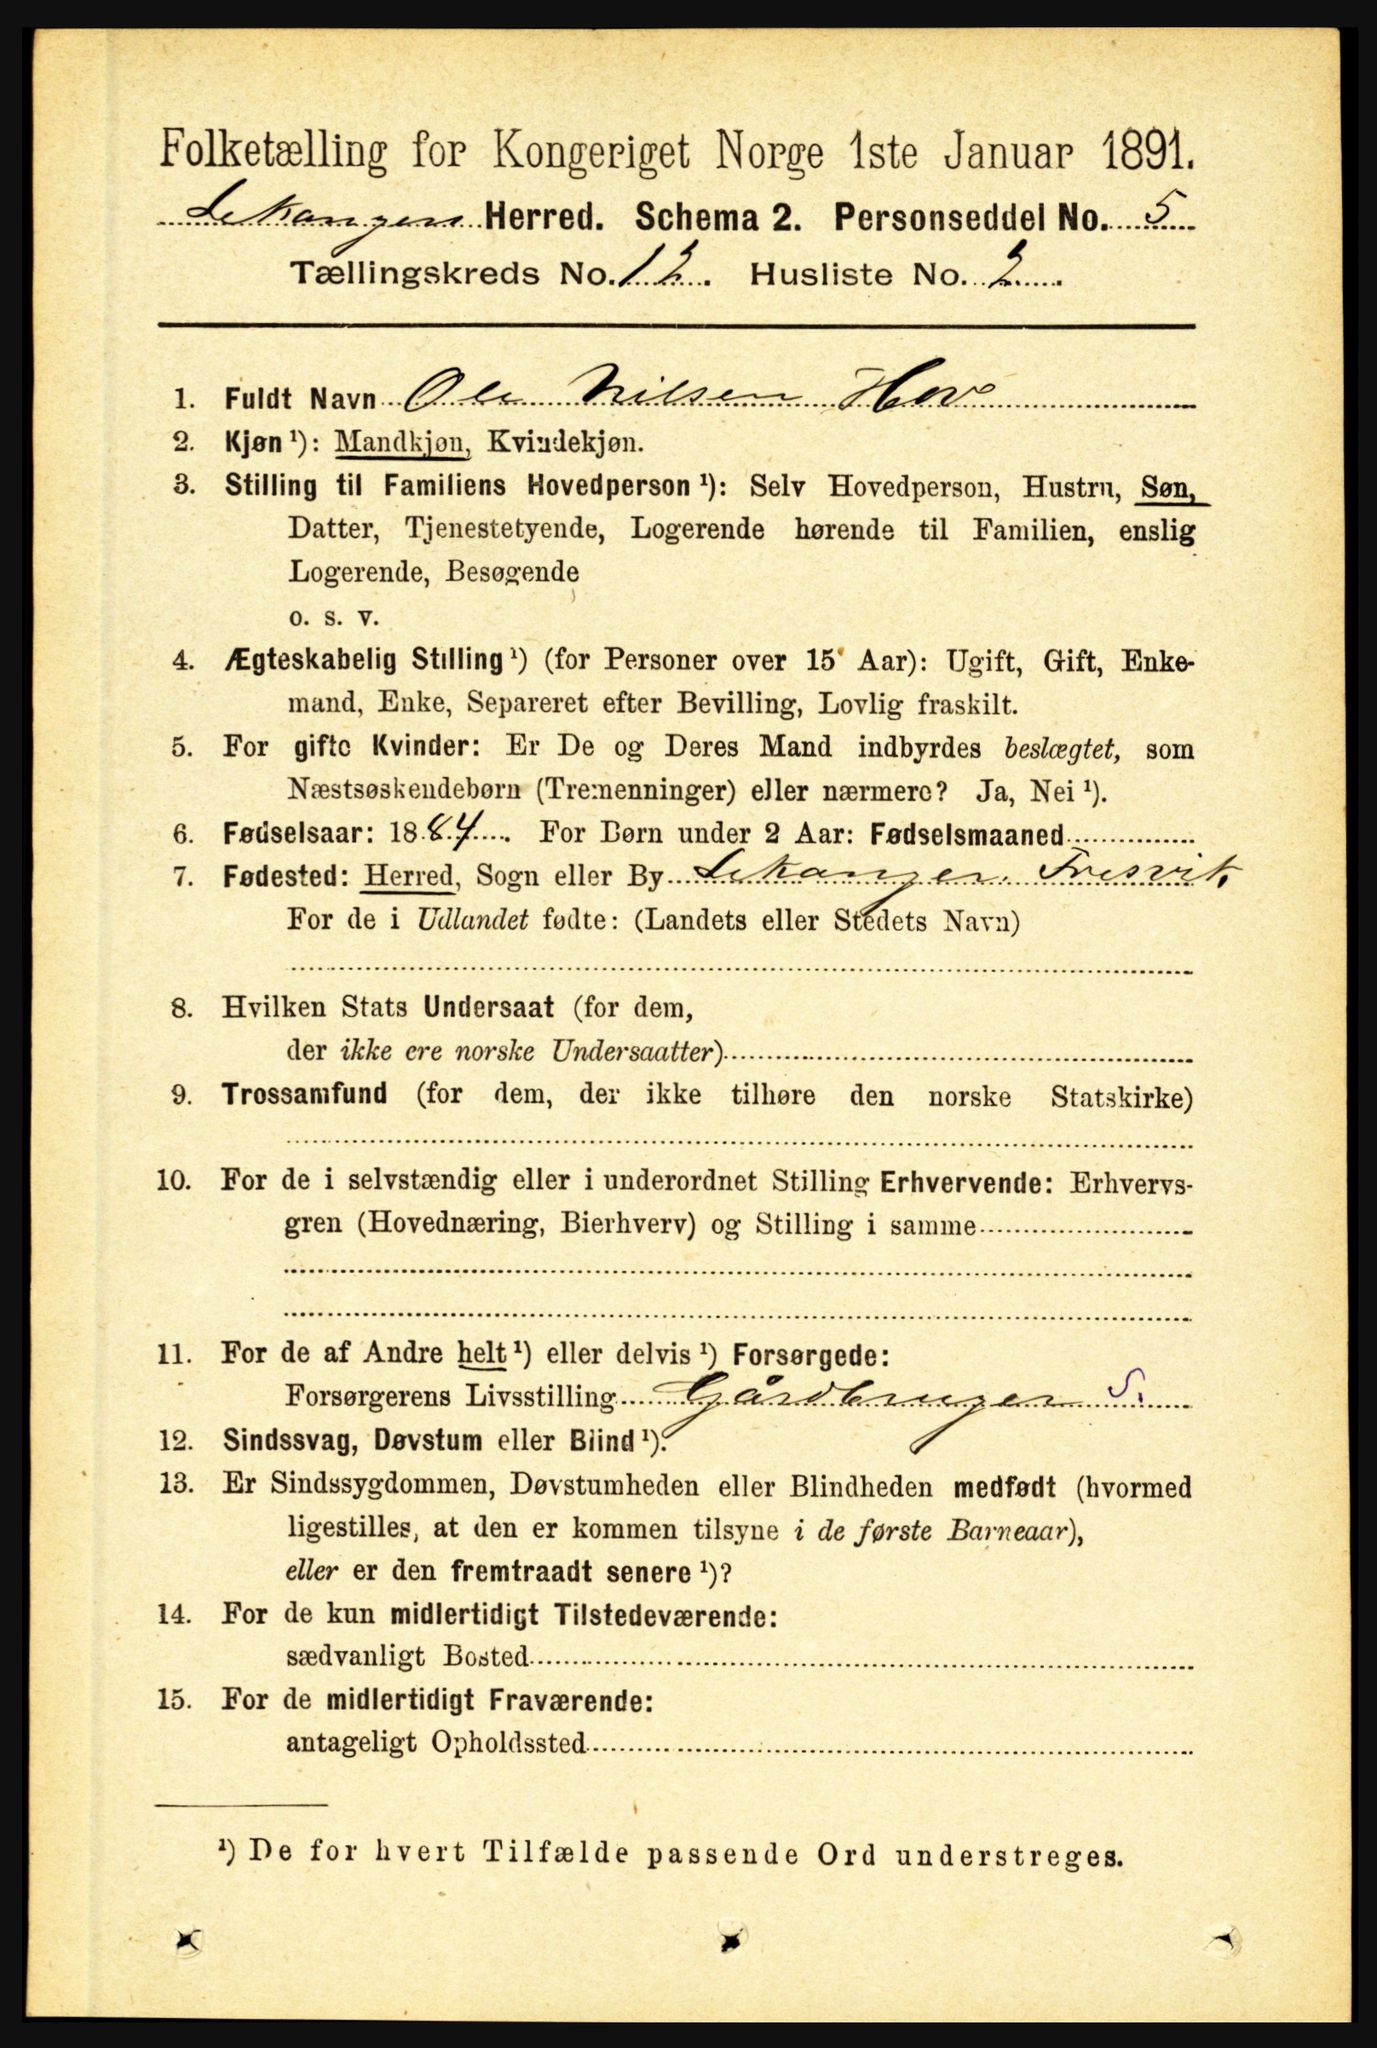 Folketælling for Kongeriget Norge 1ste Januar 1891.
Lekanger Herred. Schema 2. Personseddel No. 5
Tællingskreds No. 12. Husliste No. 2
1. Fuldt Navn Ole Nilsen Hov
2. Kjøn ¹): Mandkjøn, Kvindekjøn.
3. Stilling til Familiens Hovedperson ¹): Selv Hovedperson, Hustru, Søn,
Datter, Tjenestetyende, Logerende hørende til Familien, enslig
Logerende, Besøgende
o. s. v.
4. Ægteskabelig Stilling ¹) (for Personer over 15 Aar): Ugift, Gift, Enke-
mand, Enke, Separeret efter Bevilling, Lovlig fraskilt.
5. For gifte Kvinder: Er De og Deres Mand indbyrdes beslægtet, som
Næstsøskendebørn (Tremenninger) eller nærmere? Ja, Nei ¹).
6. Fødselsaar: 1884. For Børn under 2 Aar: Fødselsmaaned
7. Fødested: Herred, Sogn eller By Lekanger. Fresvik
For de i Udlandet fødte: (Landets eller Stedets Navn)
8. Hvilken Stats Undersaat (for dem,
der ikke ere norske Undersaatter)
9. Trossamfund (for dem, der ikke tilhøre den norske Statskirke)
10. For de i selvstændig eller i underordnet Stilling Erhvervende: Erhvervs-
gren (Hovednæring, Bierhverv) og Stilling i samme
11. For de af Andre helt ¹) eller delvis ¹) Forsørgede:
Forsørgerens Livsstilling Gårdbruger S.
12. Sindssvag, Døvstum eller Blind ¹).
13. Er Sindssygdommen, Døvstumheden eller Blindheden medfødt (hvormed
ligestilles, at den er kommen tilsyne i de første Barneaar),
eller er den fremtraadt senere ¹)?
14. For de kun midlertidigt Tilstedeværende:
sædvanligt Bosted
15. For de midlertidigt Fraværende:
antageligt Opholdssted
¹) De for hvert Tilfælde passende Ord understreges.